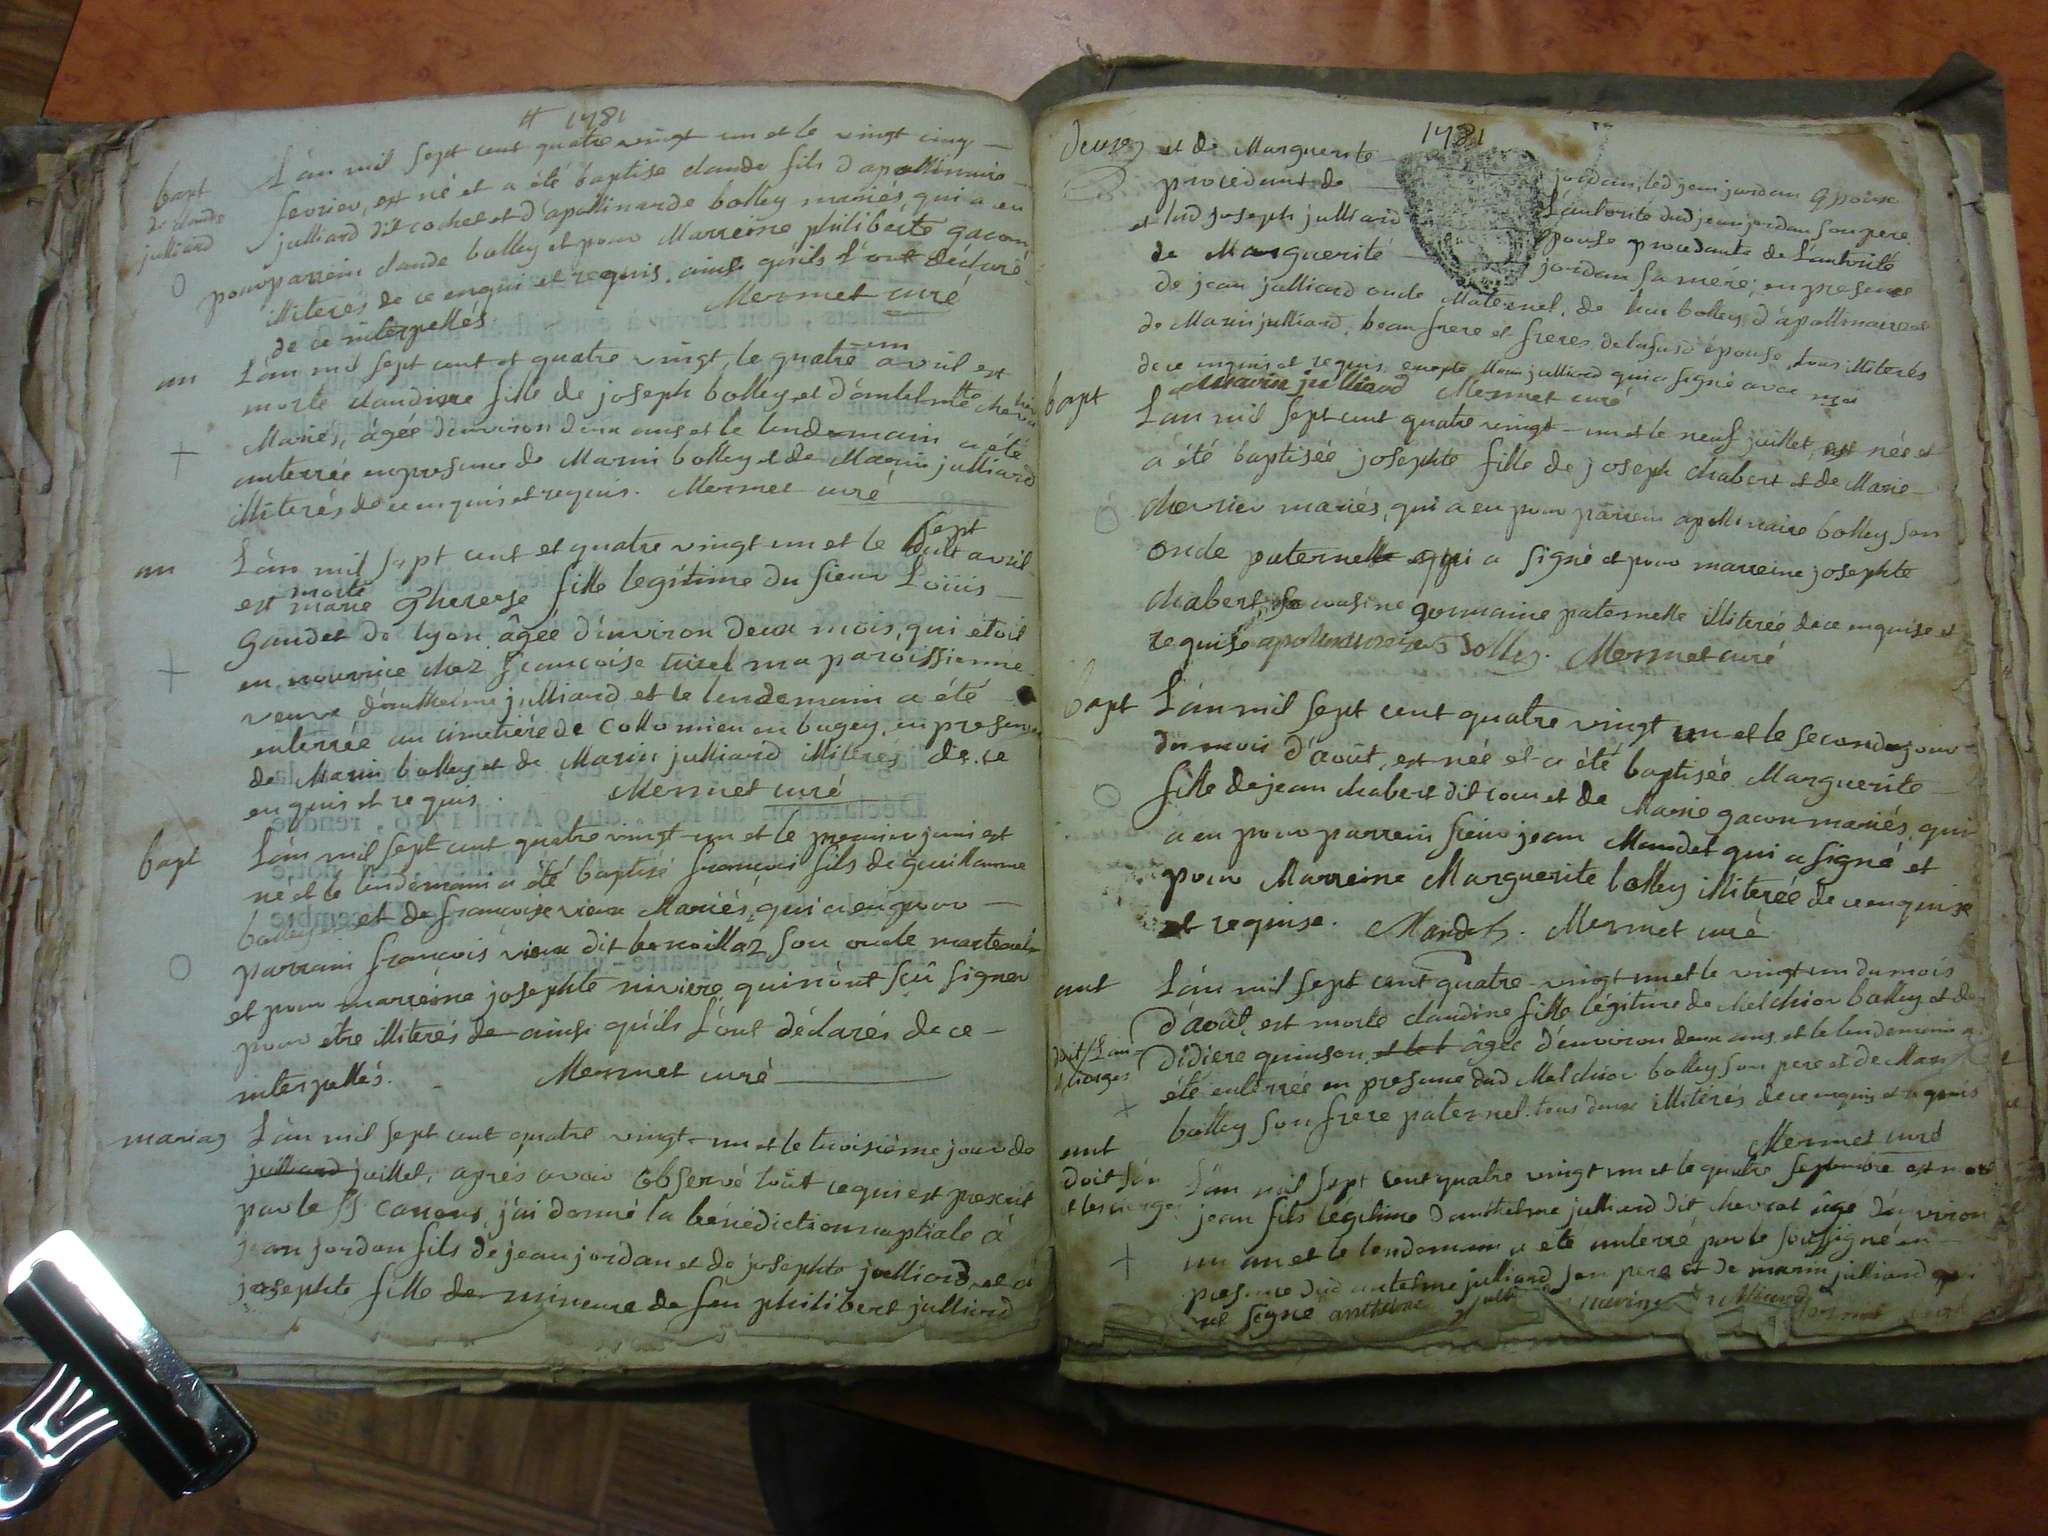 1781
L'an mil sept cent quatre vingt un et le vingt cinq
bapt
de claude
julliard
fevrier, est né et a été baptise claude fils d'apollinaire
julliard dit cochet et d'apollinarde bolley mariés, qui a eu
pour parrein claude bolley et pour Marreine philiberte gacon
illiterés de ce enqui et requis. ainsi qu'ils l'ont déclaré
de ce interpellés Mermet curé
an
L'an mil sept cent et quatre vingt un, le quatre avril est
morte claudine fille de joseph bolley et d'antelmette
Mariés, âgée d'environ deux ans et le lendemain a été
enterrée en presence de Marin bolley et de Marin julliard
illiterés de ce enquis et requis. Mermet curé
an
L'an mil sept cent et quatre vingt un et le sept avril
est morte marie Therese fille legitime du sieur Loüis
Gaudet de lyon âgée d'environ deux mois, qui étoit
en nourrice chez françoise turel ma paroissienne
veuve d'anthelme julliard et le lendemain a été
enterrée au cimetiére de Collomieu en bugey, en presence
de Marin bolley et de Marin julliard illiteres de ce
enquis et requis. Mermet curé
bapt
L'an mil sept cent quatre vingt un et le premier juin est
né et le lendemain a été baptisé françois fils de guillaume
bolley et de françoise vieux Mariés, qui a eu pour
parrain françois vieux dit benoillaz son oncle maternel
et pour marreine josephte riviere qui n'ont sçû signer
pour etre illiterés de ainsi qu'ils l'ont déclarés de ce
interpellés. Mermet curé
mariag
L'an mil sept cent quatre vingt un et le troisième jour de
julliard juillet, aprés avoir observé tout ce qui est prescrit
par le SS canons, j'ai donné la bénédiction nuptiale à
jean jordan fils de jean jordan et de josephte julliard et à
josephte fille de mineure de feu philibert julliard
1781
et de Marguerite jordan, led jean jordan epoux
procedant de L'autorité dud jean jordan son pere
et lad joseph julliard epouse procedante de L'autorité
de Marguerite jordan sa mere; en presence
de jean julliard oncle Maternel, de bolley d'apollinaire et
de Marin julliard, beau frere et freres de la susd épouse, tous illiterés
de ce enquis et requis excepté Marin julliard qui a signé avec moi
marin julliard Mermet curé
bapt
L'an mil sept cent quatre vingt un et le neuf juillet, est née et
a été baptisée josephte fille de joseph chabert et de Marie
chervier mariés, qui a eu pour parrein apollinaire bolley son
oncle paternelle qui a signé et pour marreine josephte
chabert, sa cousine germaine paternelle illiterée de ce enquise et
requise bolley. Mermet curé
bapt
L'an mil sept cent quatre vingt un et le second jour
du mois d'août, est née et a été baptisée Marguerite
fille de jean chabert dit cour et de Marie gacon mariés, qui
a eu pour parrein sieur jean Mandet qui a signé et
pour Marreine Marguerite bolley illiterée de ce enquise
et requise. Mandet. Mermet curé
ent
L'an mil sept cent quatre vingt un et le vingt un du mois
d'août, est morte claudine fille légitime de Melchior bolley et de
Didiere guinson et le l âgée d'environ deux ans et le lendemain a
été enterrée en presence dud Melchior bolley son pere et de Marin
bolley son frere paternel. tous deux illiterés de ce enquis et requis
Mermet curé
ent
L'an mil sept cent quatre vingt un et le quatre septembre est mort
jean fils légitime d'anthelme julliard dit chevrot âgé d'environ
un an et le lendemain a été enterré par le soussigné en
presence dud antelme julliard son pere et de marin julliard qui
ont signé anthelme